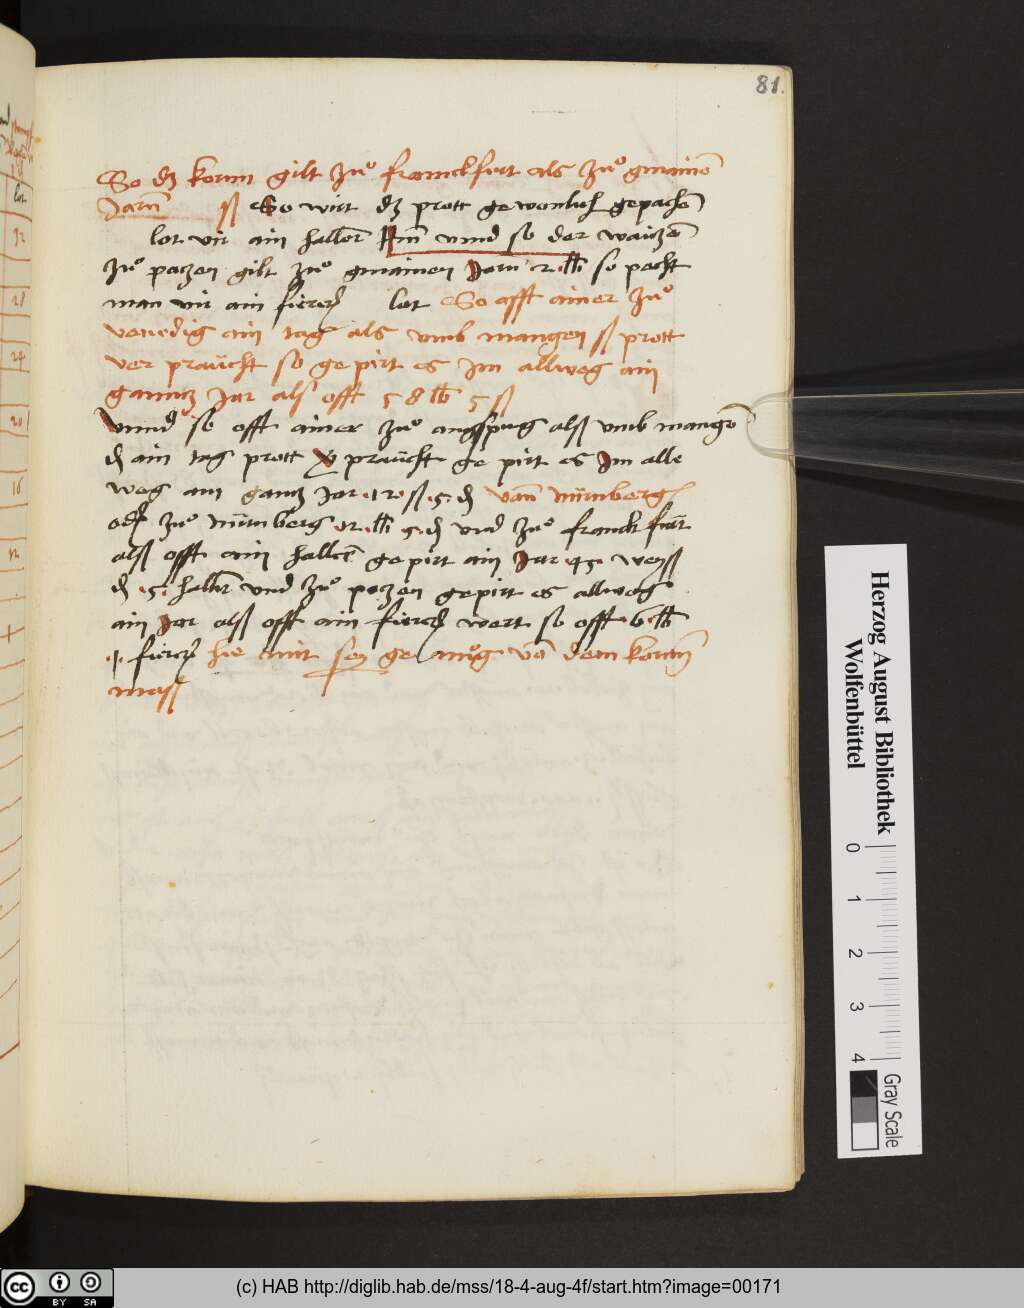 81.
So dz kornn gilt zuͦ franckfort als zuͦ gmainē
Jarn̄ ß So wirt dz prott gewonlich gepachē
lot vir ain haller Hin̄ vnnd so der waitzē
zuͦ potzen gilt zuͦ gmainen Jarn 2 lb so pacht
man vir ain fierer lot So offt ainer zuͦ
venedig ain tag als vmb mangen ß prott
ver praücht so gepirt es Jm allweg ain
ganntz Jar als offt 5 8 lb 5 ß
vnnd so offt ainer zuͦ augspurg alß vmb mangē
₰ ain tag prott praücht ge pirt es Jm alle
weg ain gantz Jar 12 ß 5 ₰ vann nürnberg
zuͦ nürnberg 12 lb 5 ₰ vnd zuͦ franck fürt
alß offt ain haller gepirt ain Jar 45 weyß
₰ 5 haller vnd zuͦ potzen gepirt es allweg
ain Jar alß offt ain fierer wert so offt 6 lb
1 fierer hie mit sey ge nuͦg vō dem kornn
meß
lot
32
28
24
20
16
12
Herzog August Bibliothek
Wolfenbüttel
0 1 2 3 4
Gray Scale
cc BY SA
(c) HAB http://diglib.hab.de/mss/18-4-aug-4f/start.htm?image=00171